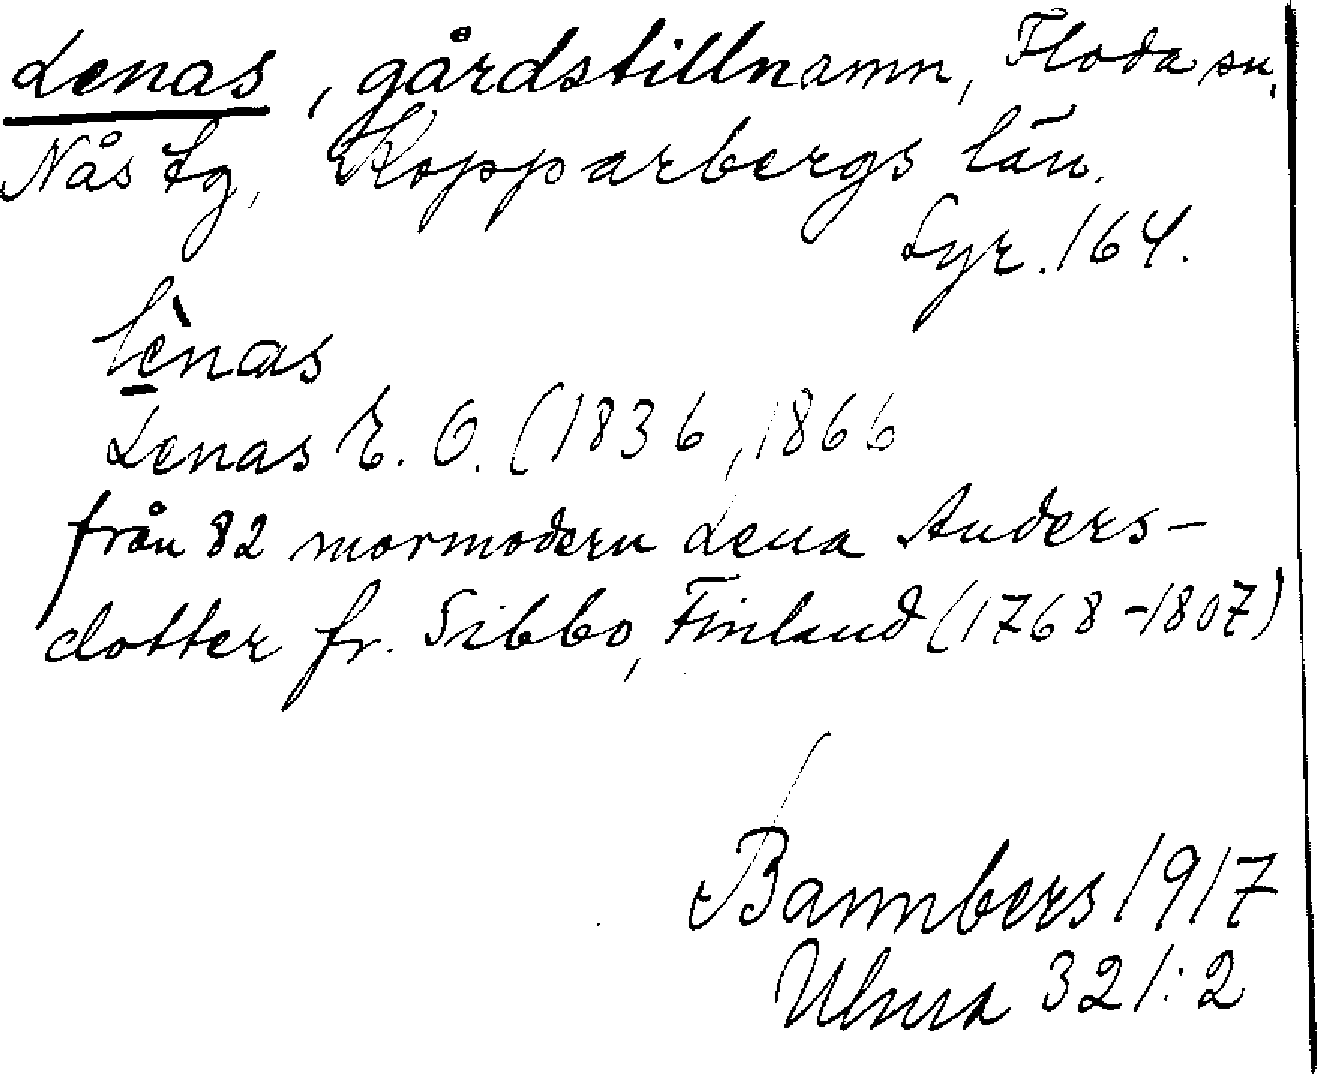 Lenas, gårdstillnamn, Floda sn,
Nås tg, Kopparbergs län.
Lyr. 164.
lènas
Lenas E. O. (1836, 1866
från 82 mormodern Lena Anders-
dotter fr. Sibbo, Finland (1768-1807)
Bannbers 1917
Ulma 321:2